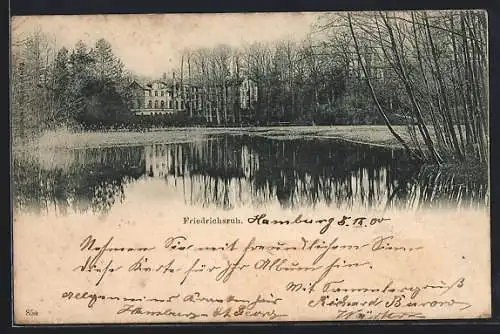 Friedrichsruh. Hamburg 8. IX. 00
Nehmen Sie mit freundlichem Sinn
diese Karte für Ihr Album hin.
Mit Sammlergruß
Allgemeines Krankenhaus Richard
Hamburg St. Georg Wärter
85a